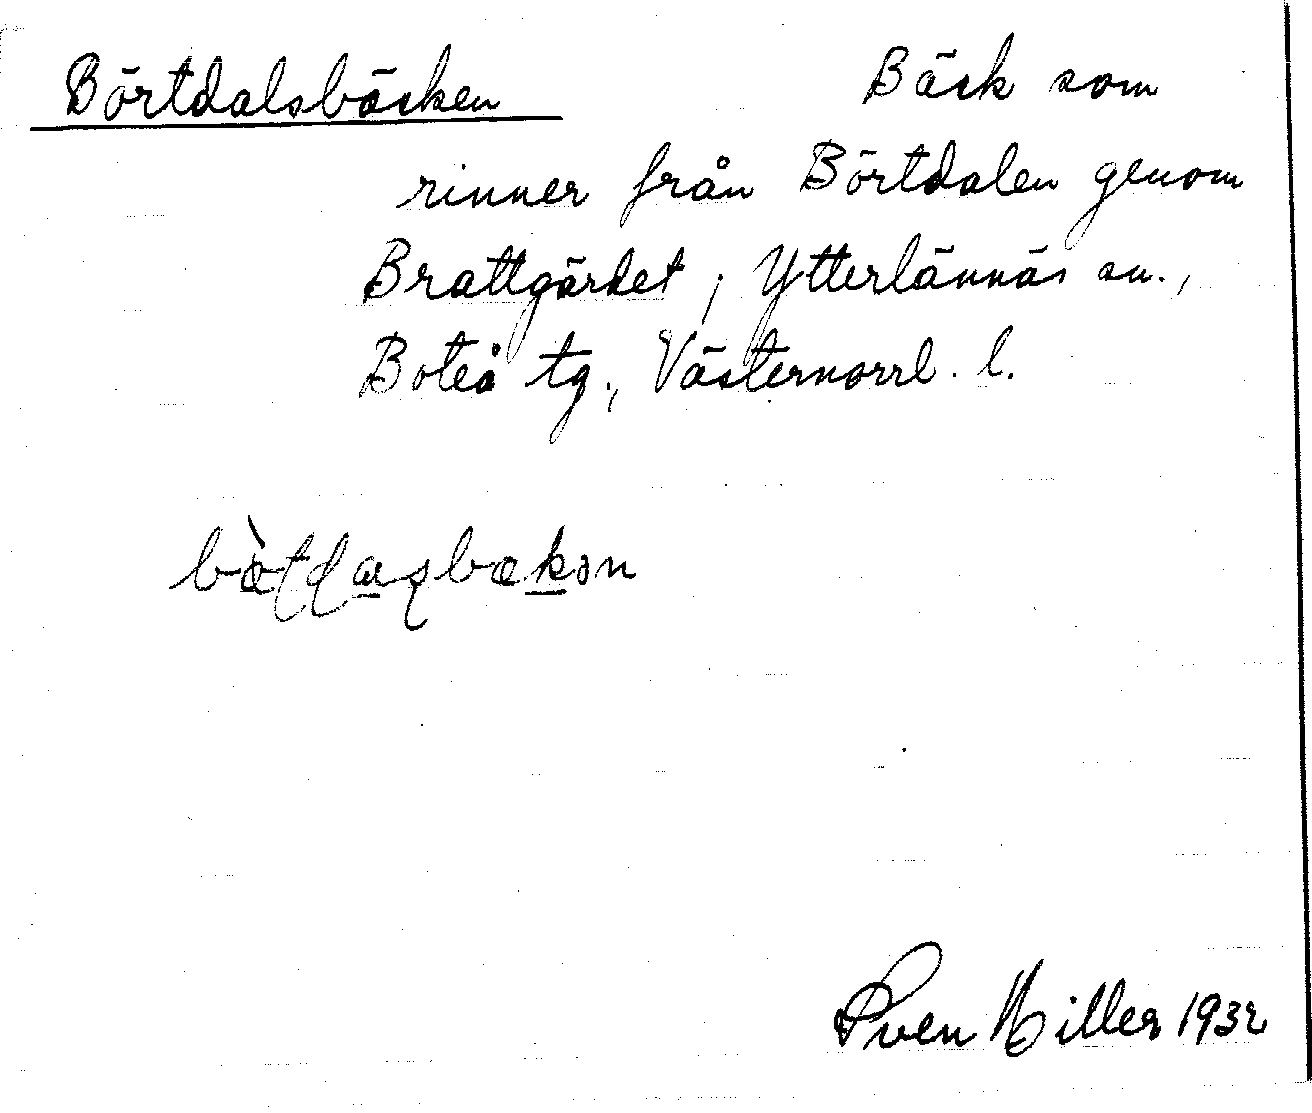 Börtdalsbäcken Bäck som
rinner från Börtdalen genom
Brattgärdet, Ytterlännäs sn.,
Boteå tg., Västernorrl. l.
Sven Hiller 1932